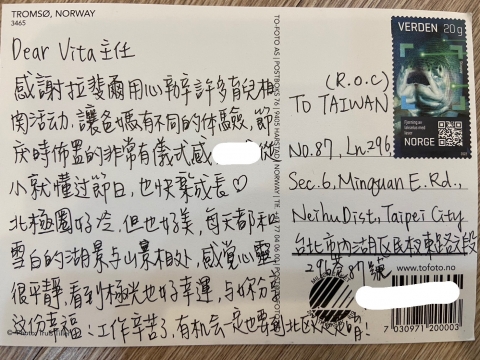 TROMSØ, NORWAY
3465
Dear Vita主任
感謝拉斐爾用心舉辦許多育兒相
関活动,讓爸媽有不同的体驗,節
庆時佈置的非常有儀式感
小就懂过節日,也快樂成長♡
北極圈好冷,但也好美,每天都和
雪白的湖景与山景相处,感覚心靈
很平靜,看到極光也好幸運,与妳分享
這份幸福!工作辛苦了,有机会一定也要到北欧
TO-FOTO AS | POSTBOKS 76 | 9405 HARSTAD, NORWAY | Tlf. 77 04 06 00
VERDEN 20g
NORGE
(R.O.C)
TO TAIWAN
No.87, Ln.296,
Sec.6, Minquan E.Rd.,
Neihu Dist, Taipei City
台北市内湖区民权東路六段
296巷87號
www.tofoto.no
7 030971 200003